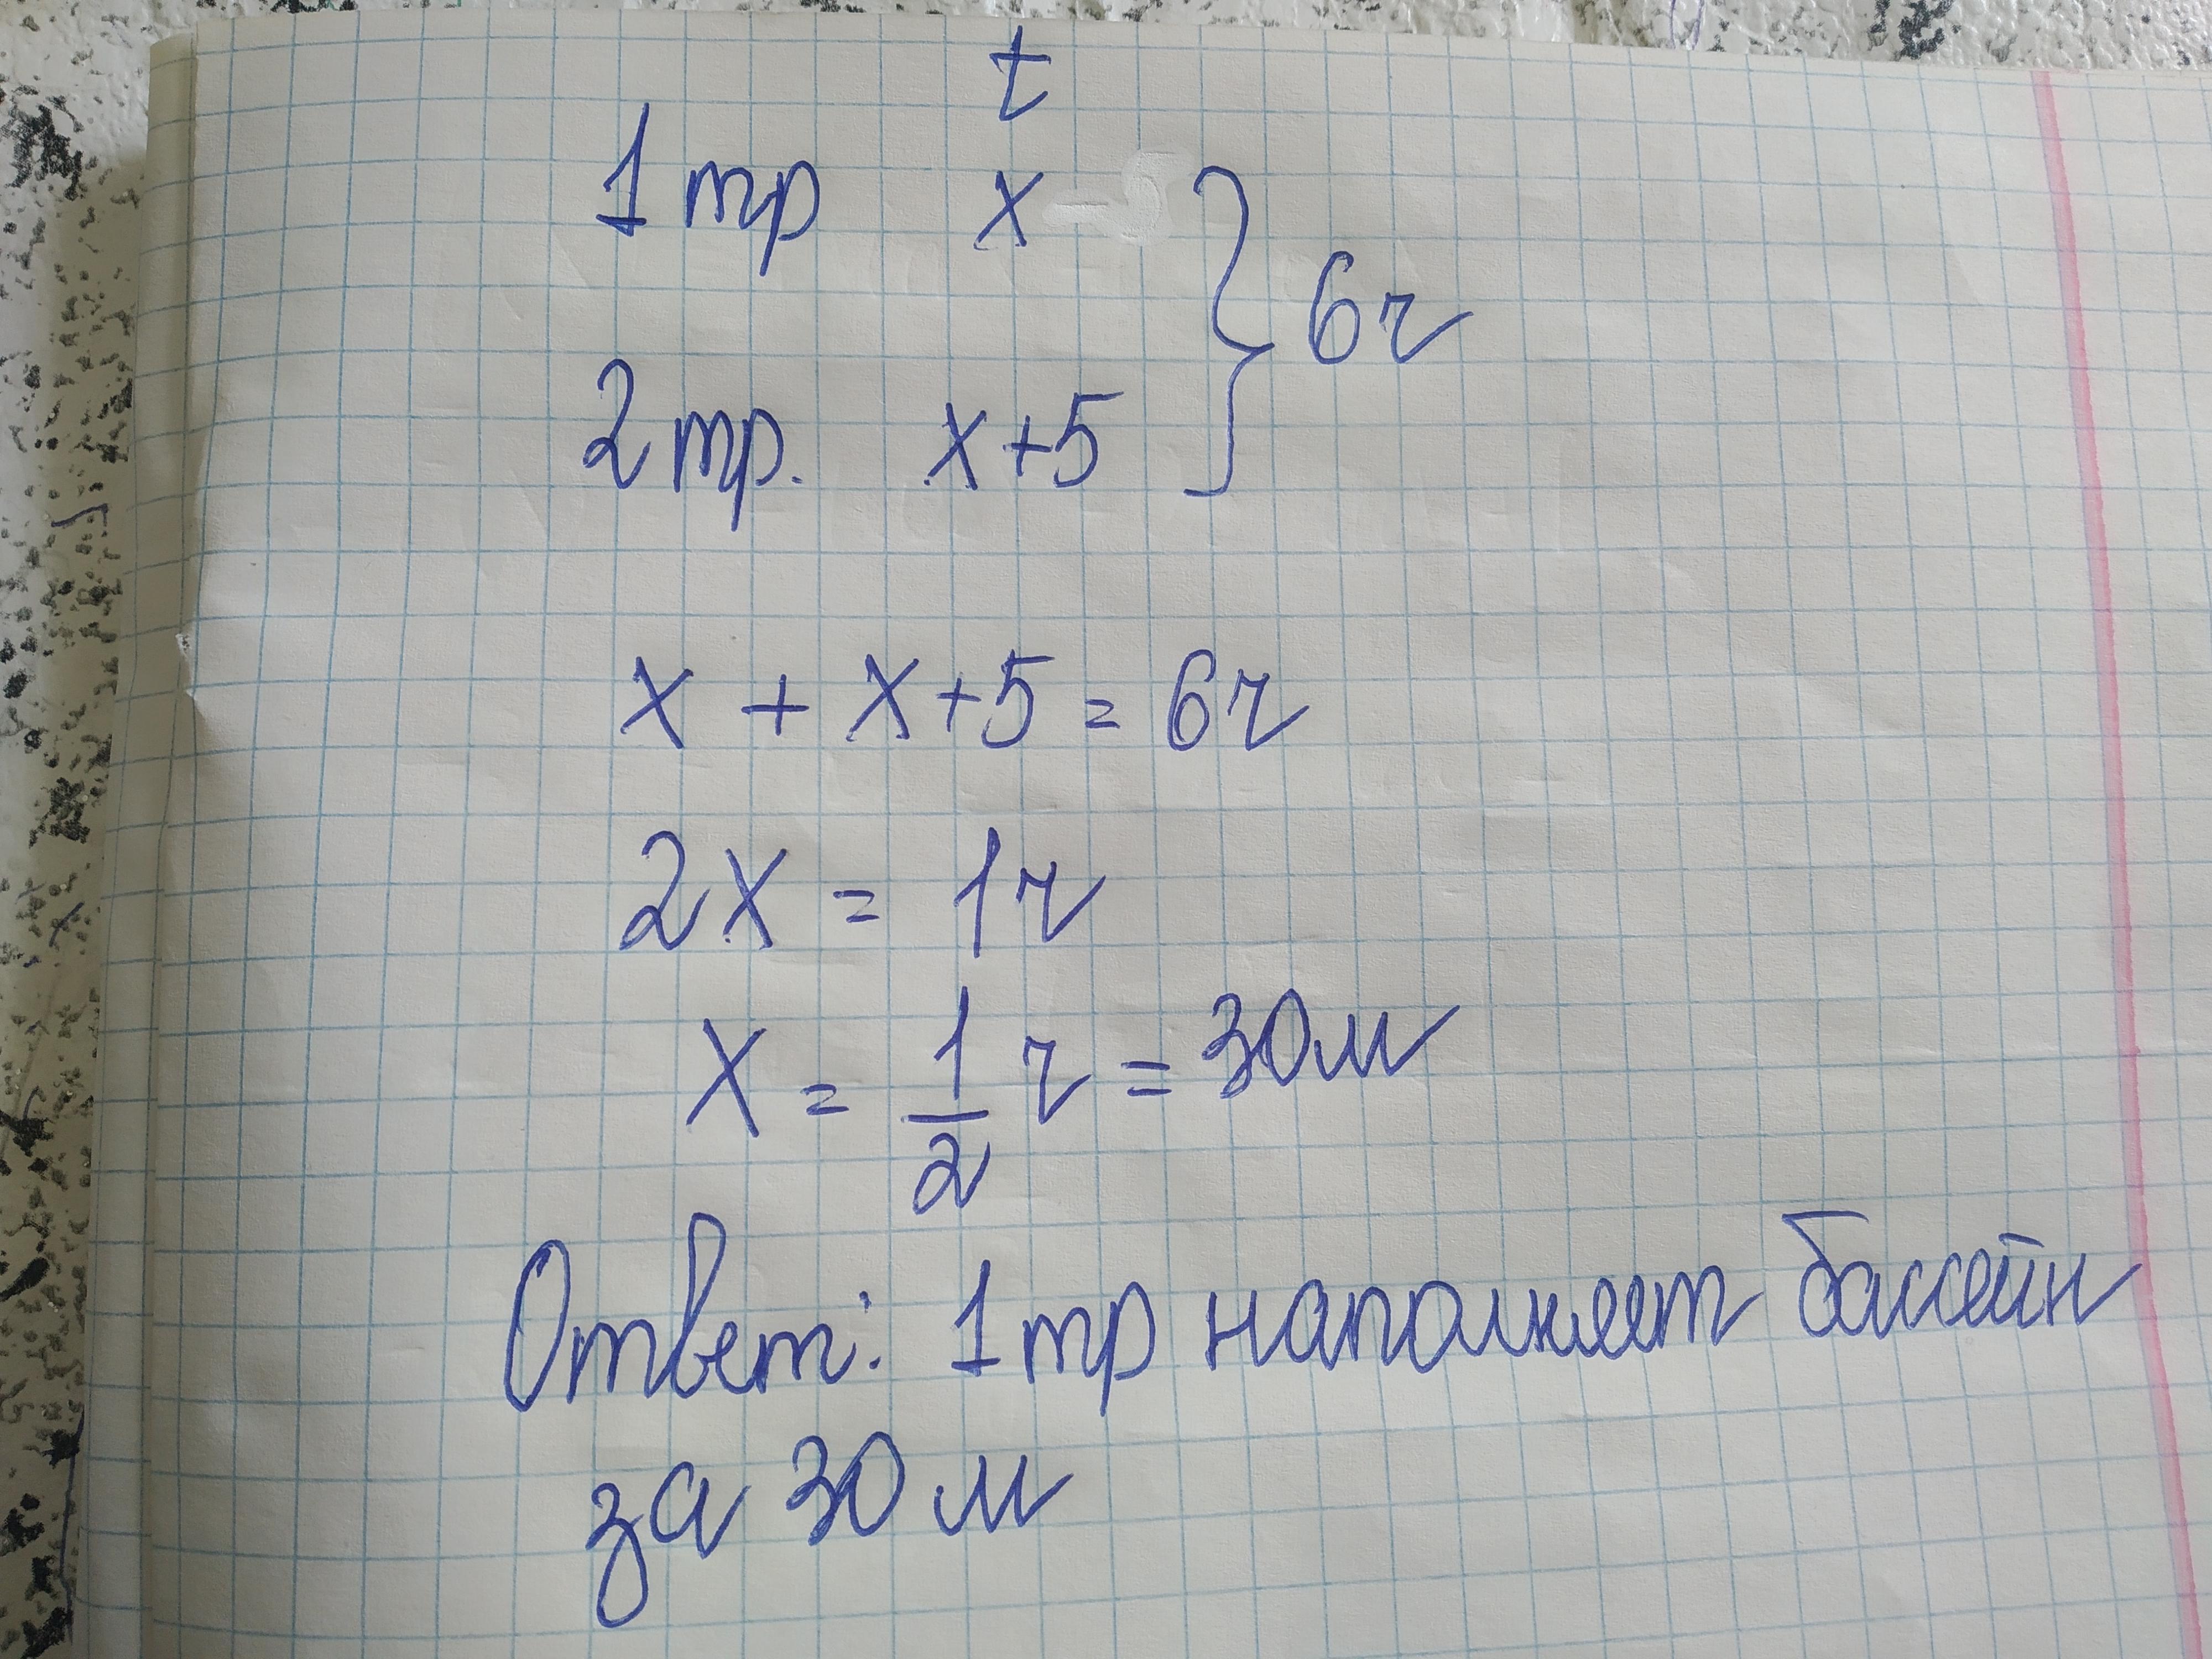 t
1 тр x } 6ч
2 тр. x+5
x + x+5 = 6ч
2x = 1ч
x = 1/2 ч = 30м
Ответ: 1 тр наполняет бассейн
за 30 м